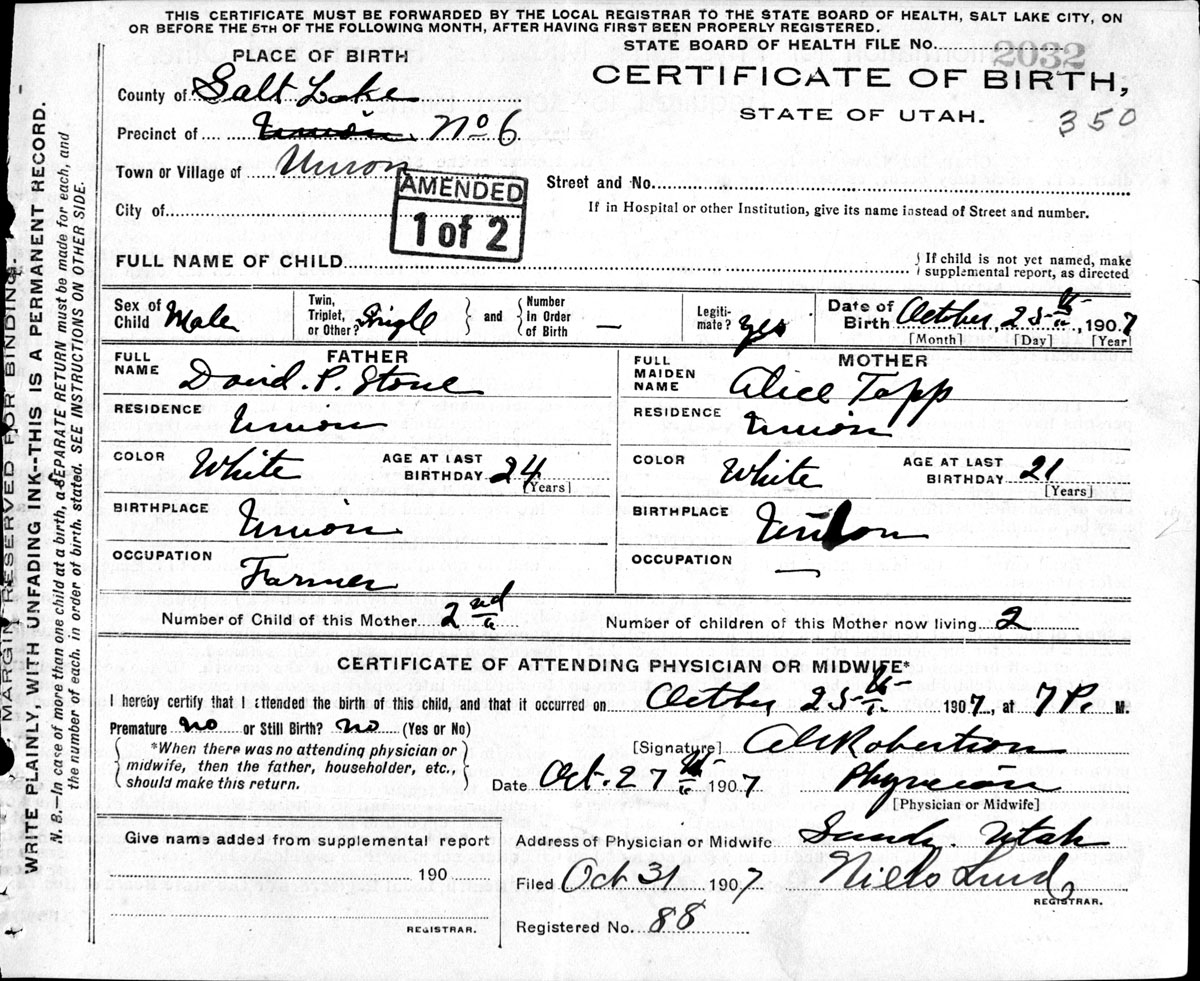 THIS CERTIFICATE MUST BE FORWARDED BY THE LOCAL REGISTRAR TO THE STATE BOARD OF HEALTH, SALT LAKE CITY, ON
OR BEFORE THE 5TH OF THE FOLLOWING MONTH, AFTER HAVING FIRST BEEN PROPERLY REGISTERED.
STATE BOARD OF HEALTH FILE NO. 2032
PLACE OF BIRTH
CERTIFICATE OF BIRTH,
STATE OF UTAH.
350
County of Salt Lake
Precinct of Union No 6
Town or Village of Union
AMENDED
1 of 2
Street and No.
City of
If in Hospital or other Institution, give its name instead of Street and number.
FULL NAME OF CHILD
{ If child is not yet named, make
supplemental report, as directed
Sex of Child Male
Twin, Triplet, or Other? Single } and { Number in Order of Birth —
Legiti-mate? yes
Date of Birth October, 25th, 1907
[Month] [Day] [Year]
FATHER
FULL NAME David. P. Stone
RESIDENCE Union
COLOR White AGE AT LAST BIRTHDAY 24
[Years]
BIRTHPLACE Union
OCCUPATION Farmer
MOTHER
FULL MAIDEN NAME Alice Tapp
RESIDENCE Union
COLOR White AGE AT LAST BIRTHDAY 21
[Years]
BIRTHPLACE Union
OCCUPATION —
Number of Child of this Mother 2nd
Number of children of this Mother now living 2
CERTIFICATE OF ATTENDING PHYSICIAN OR MIDWIFE*
I hereby certify that I attended the birth of this child, and that it occurred on October 25th 1907, at 7 P. M.
Premature no or Still Birth? no (Yes or No)
{ *When there was no attending physician or
midwife, then the father, householder, etc.,
should make this return. }
[Signature] Robertson
Date Oct. 27th 1907 Physician
[Physician or Midwife]
Give name added from supplemental report
190
REGISTRAR.
Address of Physician or Midwife Sandy. Utah
Filed Oct 31 1907 Niels Lind
REGISTRAR.
Registered No. 88
MARGIN RESERVED FOR BINDING.
WRITE PLAINLY, WITH UNFADING INK--THIS IS A PERMANENT RECORD.
N. B.—In case of more than one child at a birth, a SEPARATE RETURN must be made for each, and
the number of each, in order of birth, stated. SEE INSTRUCTIONS ON OTHER SIDE.